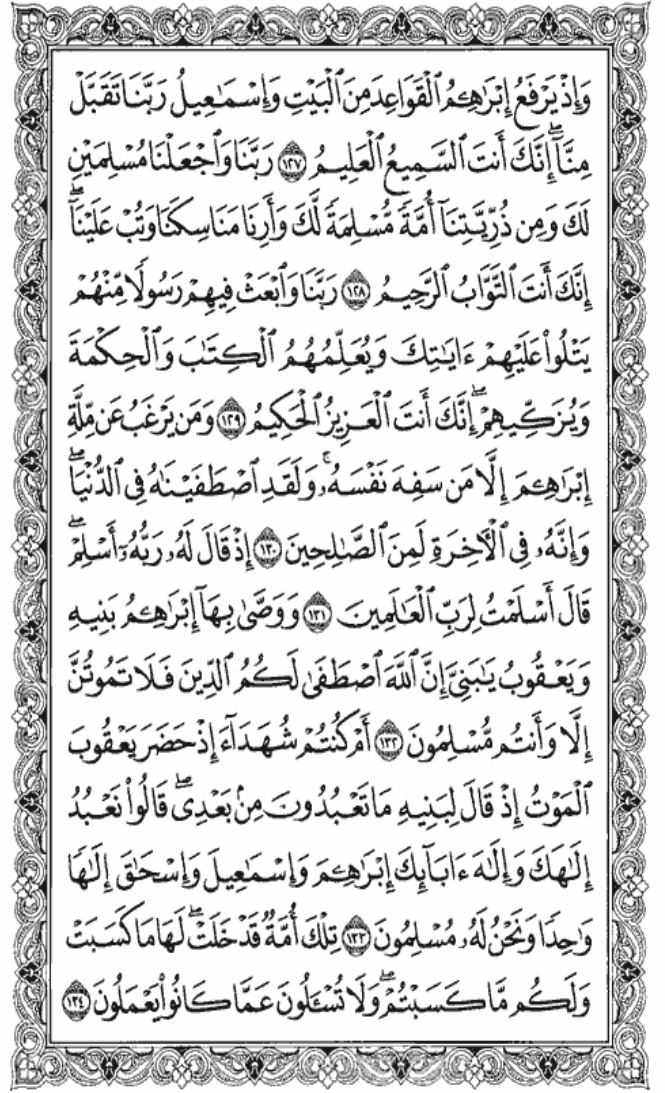 وَإِذْ يَرْفَعُ إِبْرَٰهِـۧمُ ٱلْقَوَاعِدَ مِنَ ٱلْبَيْتِ وَإِسْمَٰعِيلُ رَبَّنَا تَقَبَّلْ
مِنَّآ ۖ إِنَّكَ أَنتَ ٱلسَّمِيعُ ٱلْعَلِيمُ ١٢٧ رَبَّنَا وَٱجْعَلْنَا مُسْلِمَيْنِ
لَكَ وَمِن ذُرِّيَّتِنَآ أُمَّةً مُّسْلِمَةً لَّكَ وَأَرِنَا مَنَاسِكَنَا وَتُبْ عَلَيْنَآ ۖ
إِنَّكَ أَنتَ ٱلتَّوَّابُ ٱلرَّحِيمُ ١٢٨ رَبَّنَا وَٱبْعَثْ فِيهِمْ رَسُولًا مِّنْهُمْ
يَتْلُوا۟ عَلَيْهِمْ ءَايَٰتِكَ وَيُعَلِّمُهُمُ ٱلْكِتَٰبَ وَٱلْحِكْمَةَ
وَيُزَكِّيهِمْ ۚ إِنَّكَ أَنتَ ٱلْعَزِيزُ ٱلْحَكِيمُ ١٢٩ وَمَن يَرْغَبُ عَن مِّلَّةِ
إِبْرَٰهِـۧمَ إِلَّا مَن سَفِهَ نَفْسَهُۥ ۚ وَلَقَدِ ٱصْطَفَيْنَٰهُ فِى ٱلدُّنْيَا ۖ
وَإِنَّهُۥ فِى ٱلْءَاخِرَةِ لَمِنَ ٱلصَّٰلِحِينَ ١٣٠ إِذْ قَالَ لَهُۥ رَبُّهُۥٓ أَسْلِمْ ۖ
قَالَ أَسْلَمْتُ لِرَبِّ ٱلْعَٰلَمِينَ ١٣١ وَوَصَّىٰ بِهَآ إِبْرَٰهِـۧمُ بَنِيهِ
وَيَعْقُوبُ يَٰبَنِىَّ إِنَّ ٱللَّهَ ٱصْطَفَىٰ لَكُمُ ٱلدِّينَ فَلَا تَمُوتُنَّ
إِلَّا وَأَنتُم مُّسْلِمُونَ ١٣٢ أَمْ كُنتُمْ شُهَدَآءَ إِذْ حَضَرَ يَعْقُوبَ
ٱلْمَوْتُ إِذْ قَالَ لِبَنِيهِ مَا تَعْبُدُونَ مِنۢ بَعْدِى ۖ قَالُوا۟ نَعْبُدُ
إِلَٰهَكَ وَإِلَٰهَ ءَابَآئِكَ إِبْرَٰهِـۧمَ وَإِسْمَٰعِيلَ وَإِسْحَٰقَ إِلَٰهًا
وَٰحِدًا وَنَحْنُ لَهُۥ مُسْلِمُونَ ١٣٣ تِلْكَ أُمَّةٌ قَدْ خَلَتْ ۖ لَهَا مَا كَسَبَتْ
وَلَكُم مَّا كَسَبْتُمْ ۖ وَلَا تُسْـَٔلُونَ عَمَّا كَانُوا۟ يَعْمَلُونَ ١٣٤